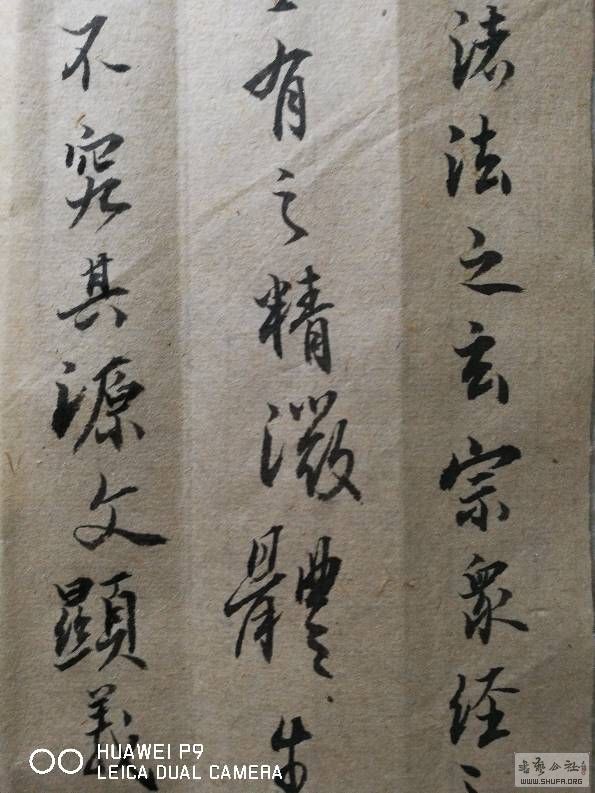 諸法之玄宗衆経
有之精微體生
不究其源文顯義
HUAWEI P9
LEICA DUAL CAMERA
书艺公社
WWW.SHUFA.ORG